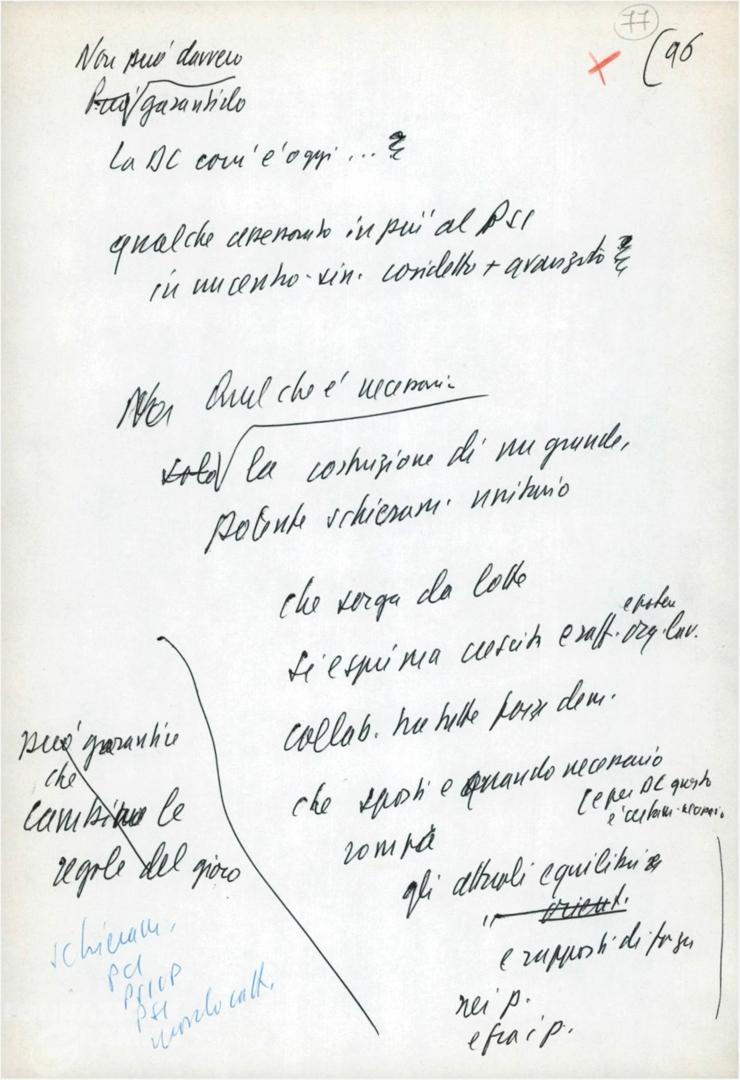 77
(96
Non può davvero
Può garantirlo
la DC com'è oggi ... ?
qualche assessorato in più al PSI
in un centro-sin. cosidetto + avanzato ?
Non Quel che è necessario
solo la costruzione di un grande,
potente schieram. unitario
che sorga da lotte
e poteri
si esprima crescita e raff. org. lav.
collab. tra tutte forze dem.
che sposti e quando necessario
(e per DC questo
è certam. necessario
rompa
gli attuali equilibri
" orient.
e rapporti di forza
nei p.
e fra i p.
può garantire
che
cambino le
regole del gioco
schieram.
PCI
PSIUP
PSI
mondo catt.